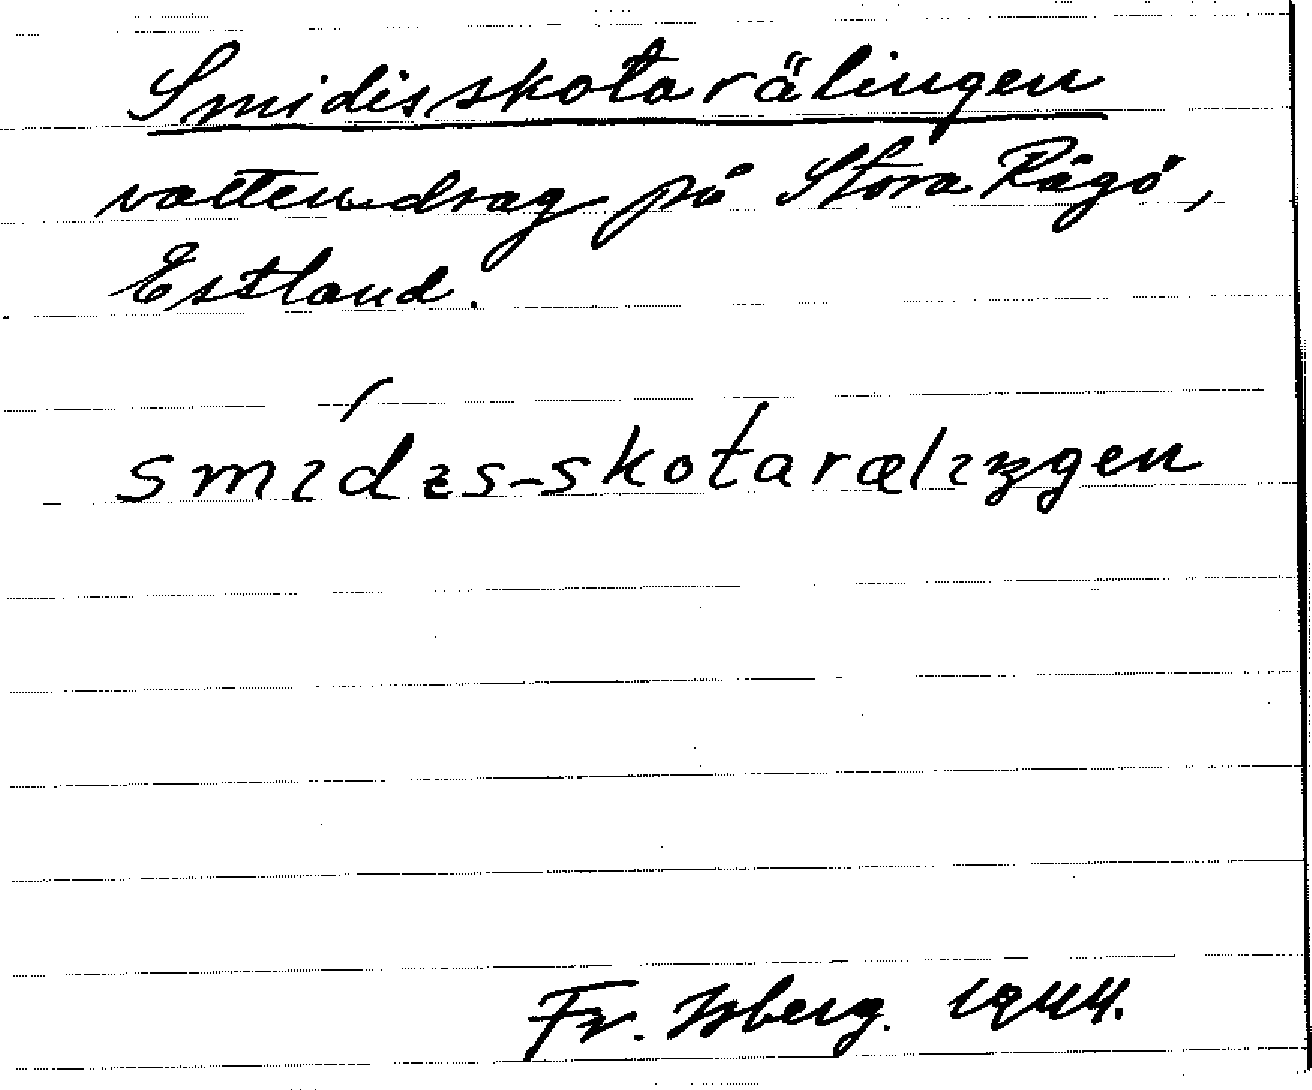 Smidisskotarälingen
vattendrag på Stora Rågö,
Estland.
smı́dɛs-skót́arælıŋgen
Fr. Isberg. 1944.